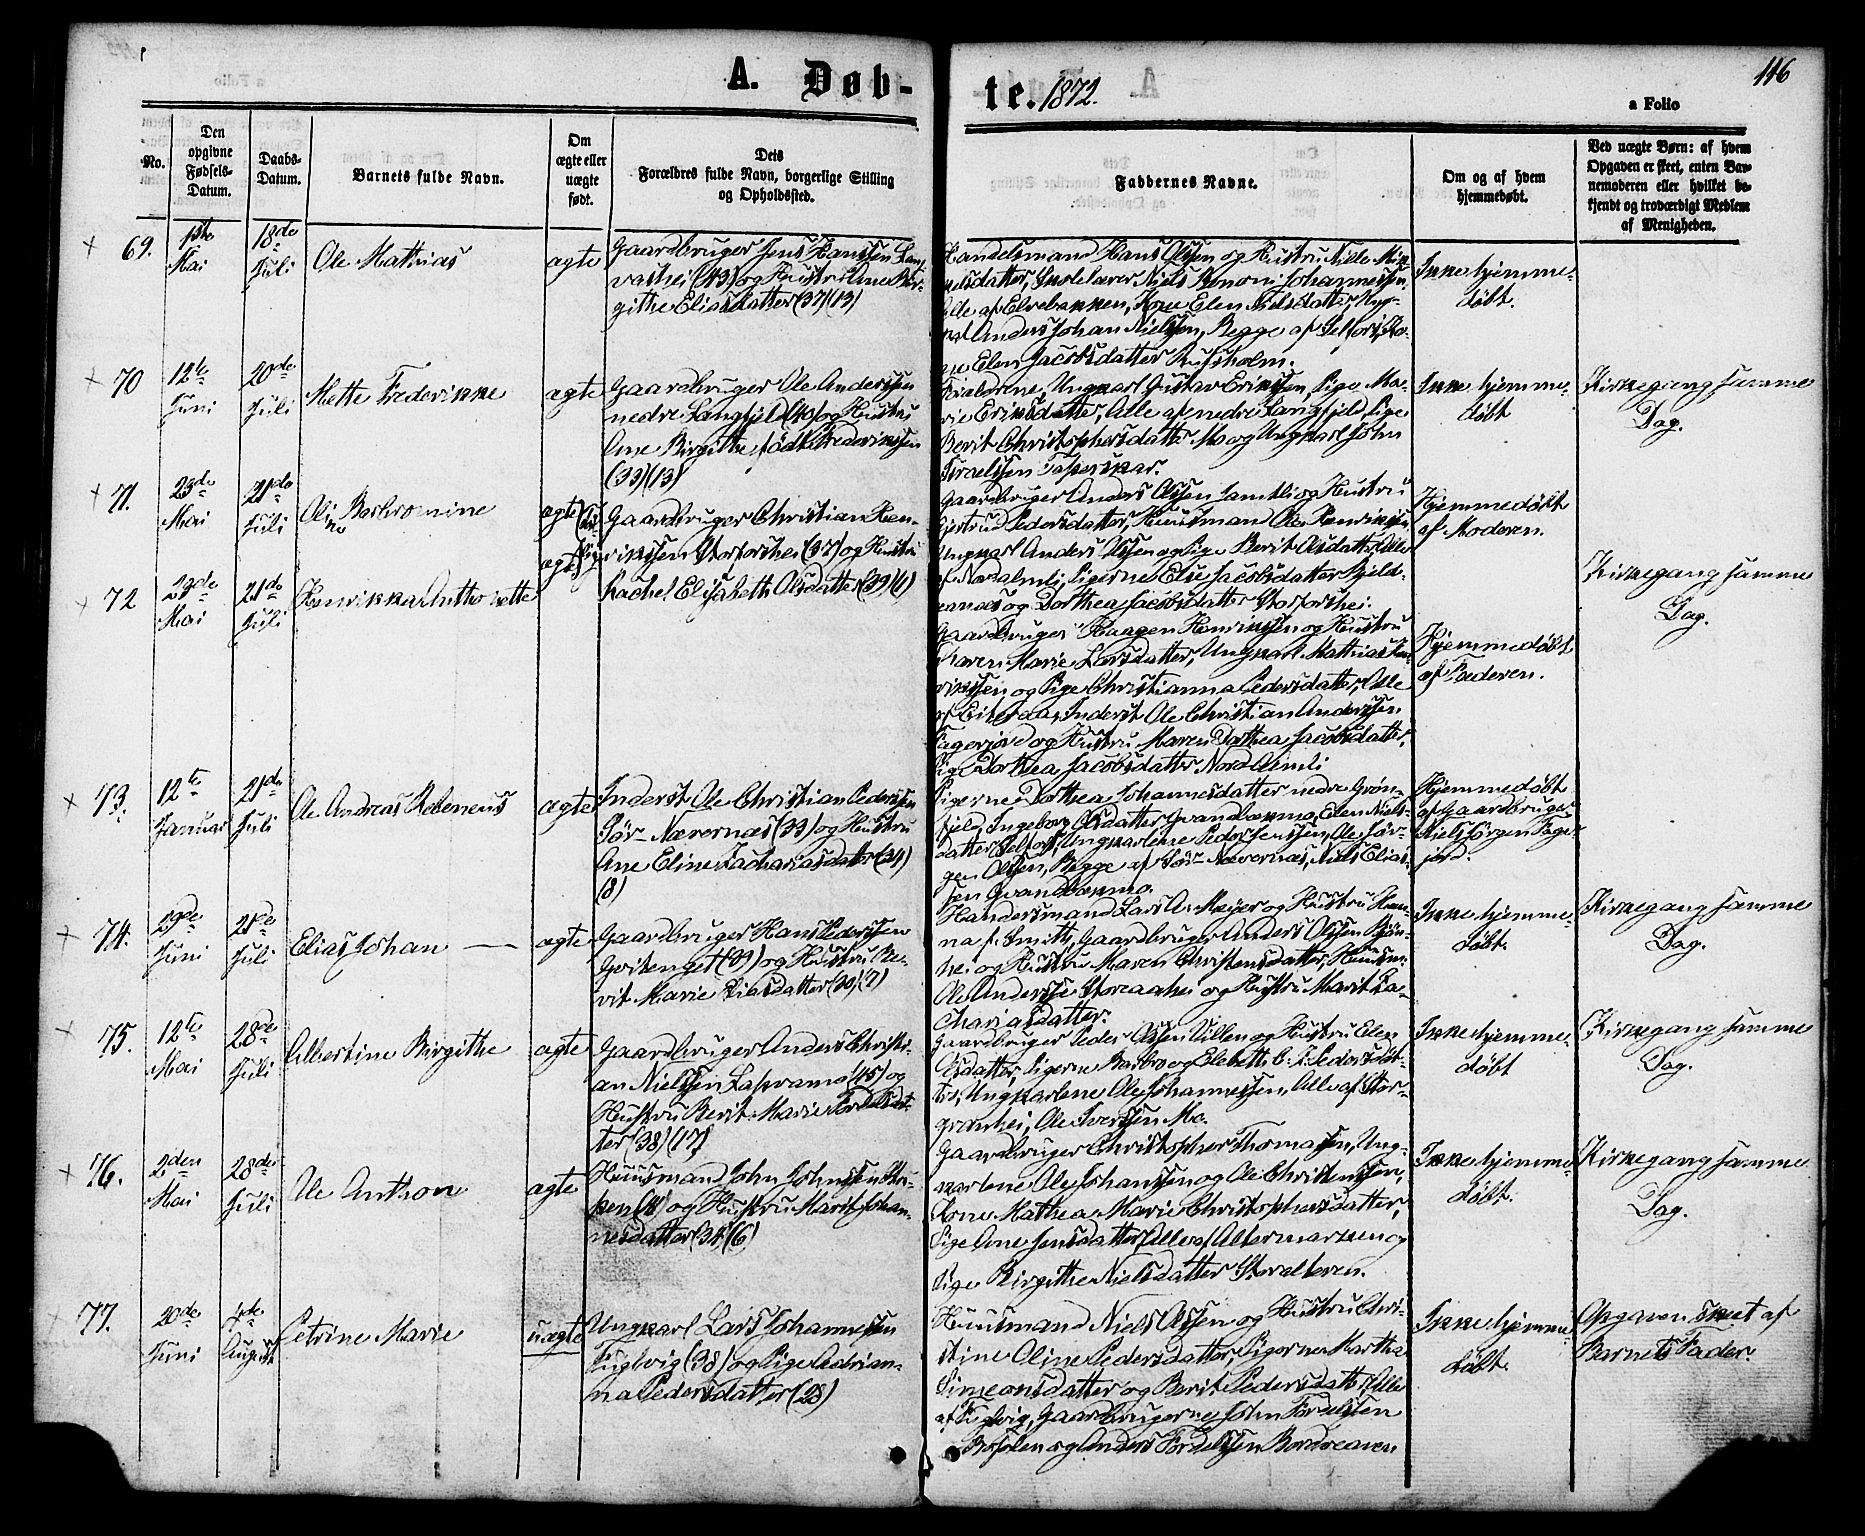 A. Døb-
te. 1872.
116
a Folio
No.
Den
opgivne
Fødsels-
Datum.
Daabs-
Datum.
Barnets fulde Navn.
Om
ægte eller
uægte
født.
Dets
Forældres fulde Navn, borgerlige Stilling
og Opholdssted.
Faddernes Navne.
Om og af hvem
hjemmedøbt.
Ved uægte Børn: af hvem
Opgaven er skeet, enten Bar-
nemoderen eller hvilket be-
kjendt og troværdigt Medlem
af Menigheden.
69.
1ste
Mai
18de
Juli
Ole Mathias
ægte
Gaardbruger Jens Hanssen Lang-
vashei (43) og Hustru Ane Bir-
githe Eliasdatter (37) (13)
Handelsmand Hans Olssen og Hustru Nille Mik-
kelsdatter, Skolelærer Niels Simoni Johannessen,
Alle af Elvebakken, Kone Elen Nielsdatter, Ung-
karl Anders Johan Nielssen, Begge af Selfors, Ko-
ne Elen Jacobsdatter
Ikke hjemme-
døbt.
70
12te
Juni
20de
Juli
Mette Frederikke
ægte
Gaardbruger Ole Anderssen
nedre Langfjeld (40) og Hustru
Ane Birgithe født Frederiksen
(33) (13)
Forældrene, Ungkarl Gustav Erikssen, Pige Ma-
rie Eriksdatter, Alle af nedre Langfjeld, Pige
Berit Christophersdatter Mo og Ungkarl John
Israelssen
Ikke hjemme-
døbt
Kirkegang samme
Dag.
71.
23de
Mai
21de
Juli
Barbromine
ægte
Gaardbruger Christian Hen-
rikssen Storforshei (37) og Hustru
Rachel Elisabeth Olsdatter (39) (1)
Gaardbruger Anders Olssen Jamtli og Hustru
Gjertrud Pedersdatter, Huusmand Ole Henrikssen,
Ungkarl Anders Olssen og Pige Berit Olsdatter, Alle
af Nordalmli, Pigerne Else Jacobsdatter
og Dorthea Jacobsdatter Storforshei.
Hjemmedøbt
af Moderen.
72
23de
Mai
21de
Juli
Henrikka Anthonette
ægte
Gaardbruger Haagen Henrikssen og Hustru
Maren Marie Larsdatter, Ungkarl Mathias Hen-
rikssen og Pige Christianna Pedersdatter, Alle
af Eiteraa, Inderst Ole Christian Anderssen
Fagerjord og Hustru Maren Dorthea Jacobsdatter,
Pige Dorthea Jacobsdatter Nord Almli
Hjemmedøbt
af Faderen.
Kirkegang samme
Dag.
73.
12te
Januar
21de
Juli
Ole Andreas Rebeneus
ægte
Inderst Ole Christian Pederssen
Sør-Nævernæs (33) og Hustru
Ane Eline Zachariasdatter (24)
(8)
Pigerne Dorthea Johannesdatter nedre Grøn-
fjeld, Ingeborg Olsdatter Qvandbæmmo, Elen Niels-
datter Selfors, Ungkarlene Peder Jenssen, Ole Jør-
gen Olssen, Begge af Sør-Nævernæs, Niels Elias-
sen Qvandbæmmo.
Hjemmedøbt
af Gaardbruger
Niels Jørgen Fager-
jord.
74.
29de
Juni
21de
Juli
Elias Johan —
ægte
Gaardbruger Hans Pederssen
Hvitenget (39) og Hustru Be-
rit Marie Eliasdatter (30) (7)
Handelsmand Lars A. Meyer og Hustru Han-
na f. Smith, Gaardbruger Anders Olssen Bjørn-
hei og Hustru Maren Christensdatter, Huusm.
Ole Anderssen Storaahei og Hustru Marit Za-
chariasdatter.
Ikke hjemme-
døbt.
Kirkegang samme
Dag.
75.
12te
Mai
28de
Juli
Albertine Birgithe
ægte
Gaardbruger Anders Christi-
an Nielssen Laspmo (45) og
Hustru Berit Marie Tordelsdat-
ter (38) (17)
Gaardbruger Peder Olssen Villen og Hustru Elen
Olsdatter, Pigerne Barbro og Elsbeth
Ungkarlene Ole Johannessen, Alle af Stor-
granhei, Ole Iverssen Mo.
Ikke hjemme-
døbt
Kirkegang samme
Dag.
76.
2den
Mai
28de
Juli
Ole Anthon
ægte
Huusmand John Johnssen
og Hustru Marit Johan-
nesdatter (34) (6)
Gaardbruger Christopher Thomassen, Ung-
karlene Ole Johanssen og Ole Christenssen,
Kone Mathea Marie Christophersdatter,
Pige Ane Jensdatter, Alle af Altermarken og
Pige Birgithe Nielsdatter Storalteren.
Ikke hjemme-
døbt.
Kirkegang samme
Dag.
77.
20de
Juni
4de
August
Petrine Marie
uægte
Ungkarl Lars Johannessen
Fuglvig (38) og Pige Adrian-
na Pedersdatter (28)
Huusmand Niels Olssen og Hustru Chri-
stine Oline Pedersdatter, Pigerne Martha
Simeonsdatter og Berit Pedersdatter, Alle
af Fuglvig, Gaardbrugerne John Tordelssen
Bosslen og Anders Tordelssen Bordveaven
Ikke hjemme-
døbt.
Opgaven skeet af
Barnets Fader.